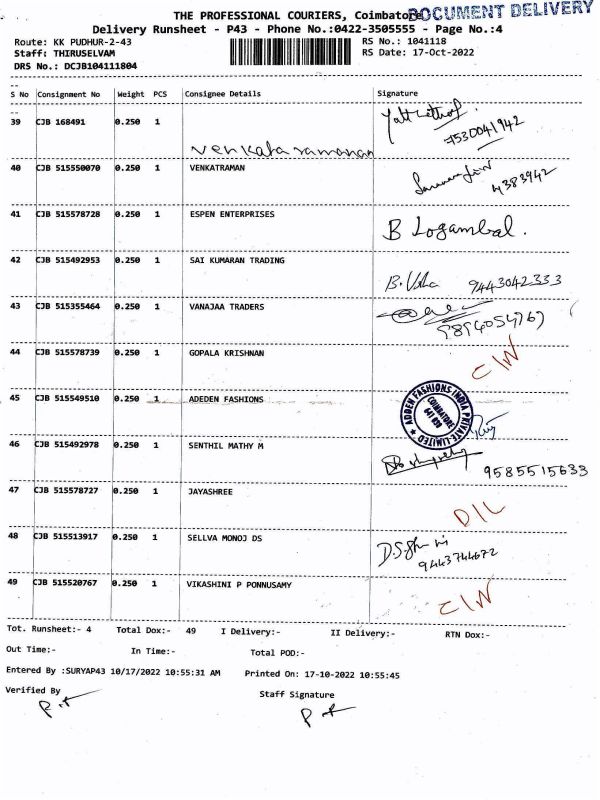 THE PROFESSIONAL COURIERS, Coimbatore
DOCUMENT DELIVERY
Delivery Runsheet - P43 - Phone No.:0422-3505555 - Page No.:4
Route: KK PUDHUR-2-43 RS No.: 1041118
Staff: THIRUSELVAM RS Date: 17-Oct-2022
DRS No.: DCJB104111804
S No Consignment No Weight PCS Consignee Details Signature
39 CJB 168491 0.250 1
7530041942
venkata ramanan
40 CJB 515550070 0.250 1 VENKATRAMAN
4383942
41 CJB 515578728 0.250 1 ESPEN ENTERPRISES
B Logambal.
42 CJB 515492953 0.250 1 SAI KUMARAN TRADING
B. Usha 9443042333
43 CJB 515355464 0.250 1 VANAJAA TRADERS
9894054767
44 CJB 515578739 0.250 1 GOPALA KRISHNAN
C/W
45 CJB 515549510 0.250 1 ADEDEN FASHIONS
ADDEN FASHIONS INDIA PRIVATE LIMITED
COIMBATORE
46 CJB 515492978 0.250 1 SENTHIL MATHY M
9585515633
47 CJB 515578727 0.250 1 JAYASHREE
D/L
48 CJB 515513917 0.250 1 SELLVA MONOJ DS
9443744672
49 CJB 515520767 0.250 1 VIKASHINI P PONNUSAMY
C/W
Tot. Runsheet:- 4 Total Dox:- 49 I Delivery:- II Delivery:- RTN Dox:-
Out Time:- In Time:- Total POD:-
Entered By :SURYAP43 10/17/2022 10:55:31 AM Printed On: 17-10-2022 10:55:45
Verified By Staff Signature